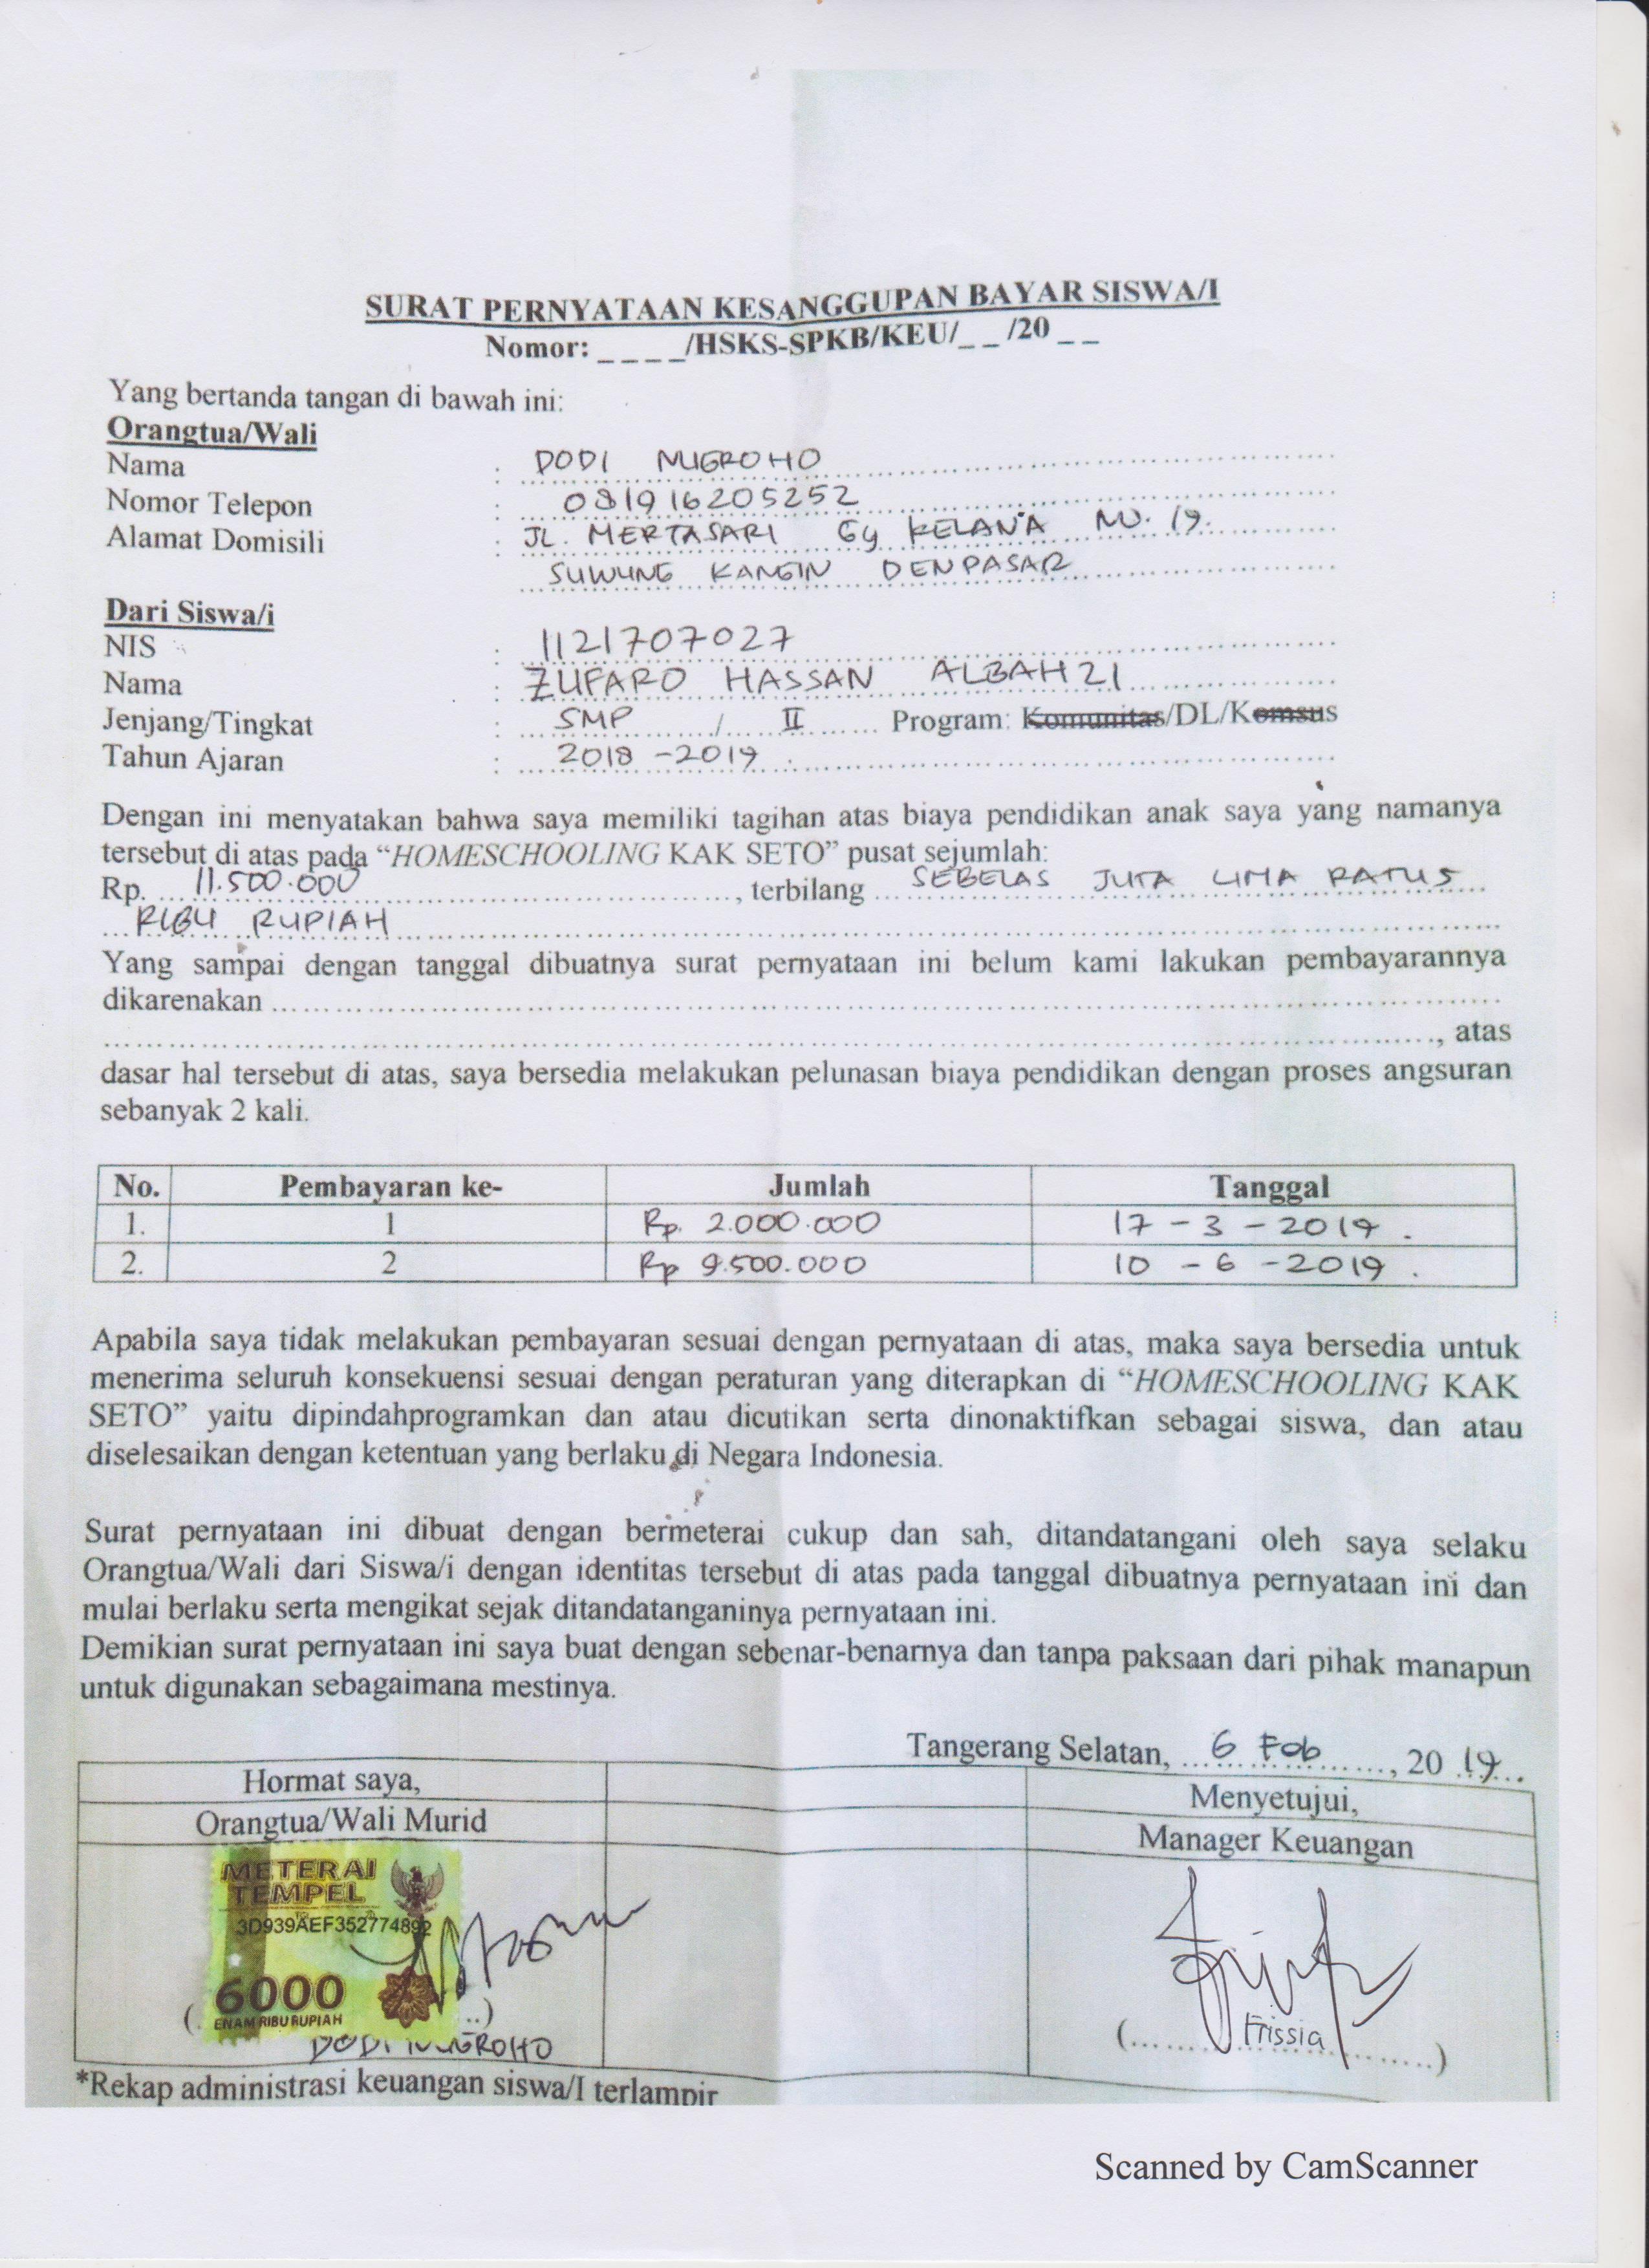 SURAT PERNYATAAN KESANGGUPAN BAYAR SISWA/I
Nomor: _ _ _ _/HSKS-SPKB/KEU/_ _ /20 _ _
Yang bertanda tangan di bawah ini:
Orangtua/Wali
Nama : DODI NUGROHO
Nomor Telepon : 081916205252
Alamat Domisili : JL. MERTASARI Gg KELANA NO. 19.
SUWUNG KANGIN DENPASAR
Dari Siswa/i
NIS : 1121707027
Nama : ZUFARO HASSAN ALBAHZI
Jenjang/Tingkat : SMP / II Program: Komunitas/DL/Komsus
Tahun Ajaran : 2018 - 2019
Dengan ini menyatakan bahwa saya memiliki tagihan atas biaya pendidikan anak saya yang namanya
tersebut di atas pada “HOMESCHOOLING KAK SETO” pusat sejumlah:
Rp. 11.500.000, terbilang SEBELAS JUTA LIMA RATUS
RIBU RUPIAH
Yang sampai dengan tanggal dibuatnya surat pernyataan ini belum kami lakukan pembayarannya
dikarenakan
, atas
dasar hal tersebut di atas, saya bersedia melakukan pelunasan biaya pendidikan dengan proses angsuran
sebanyak 2 kali.
No. Pembayaran ke- Jumlah Tanggal
1. 1 Rp. 2.000.000 17 - 3 - 2019.
2. 2 Rp 9.500.000 10 - 6 - 2019.
Apabila saya tidak melakukan pembayaran sesuai dengan pernyataan di atas, maka saya bersedia untuk
menerima seluruh konsekuensi sesuai dengan peraturan yang diterapkan di “HOMESCHOOLING KAK
SETO” yaitu dipindahprogramkan dan atau dicutikan serta dinonaktifkan sebagai siswa, dan atau
diselesaikan dengan ketentuan yang berlaku di Negara Indonesia.
Surat pernyataan ini dibuat dengan bermeterai cukup dan sah, ditandatangani oleh saya selaku
Orangtua/Wali dari Siswa/i dengan identitas tersebut di atas pada tanggal dibuatnya pernyataan ini dan
mulai berlaku serta mengikat sejak ditandatanganinya pernyataan ini.
Demikian surat pernyataan ini saya buat dengan sebenar-benarnya dan tanpa paksaan dari pihak manapun
untuk digunakan sebagaimana mestinya.
Tangerang Selatan, 6 Feb, 20 19
Hormat saya,
Orangtua/Wali Murid
Menyetujui,
Manager Keuangan
METERAI
TEMPEL
3D939AEF352774892
6000
ENAM RIBU RUPIAH
DODI NUGROHO
Frissia
*Rekap administrasi keuangan siswa/I terlampir
Scanned by CamScanner